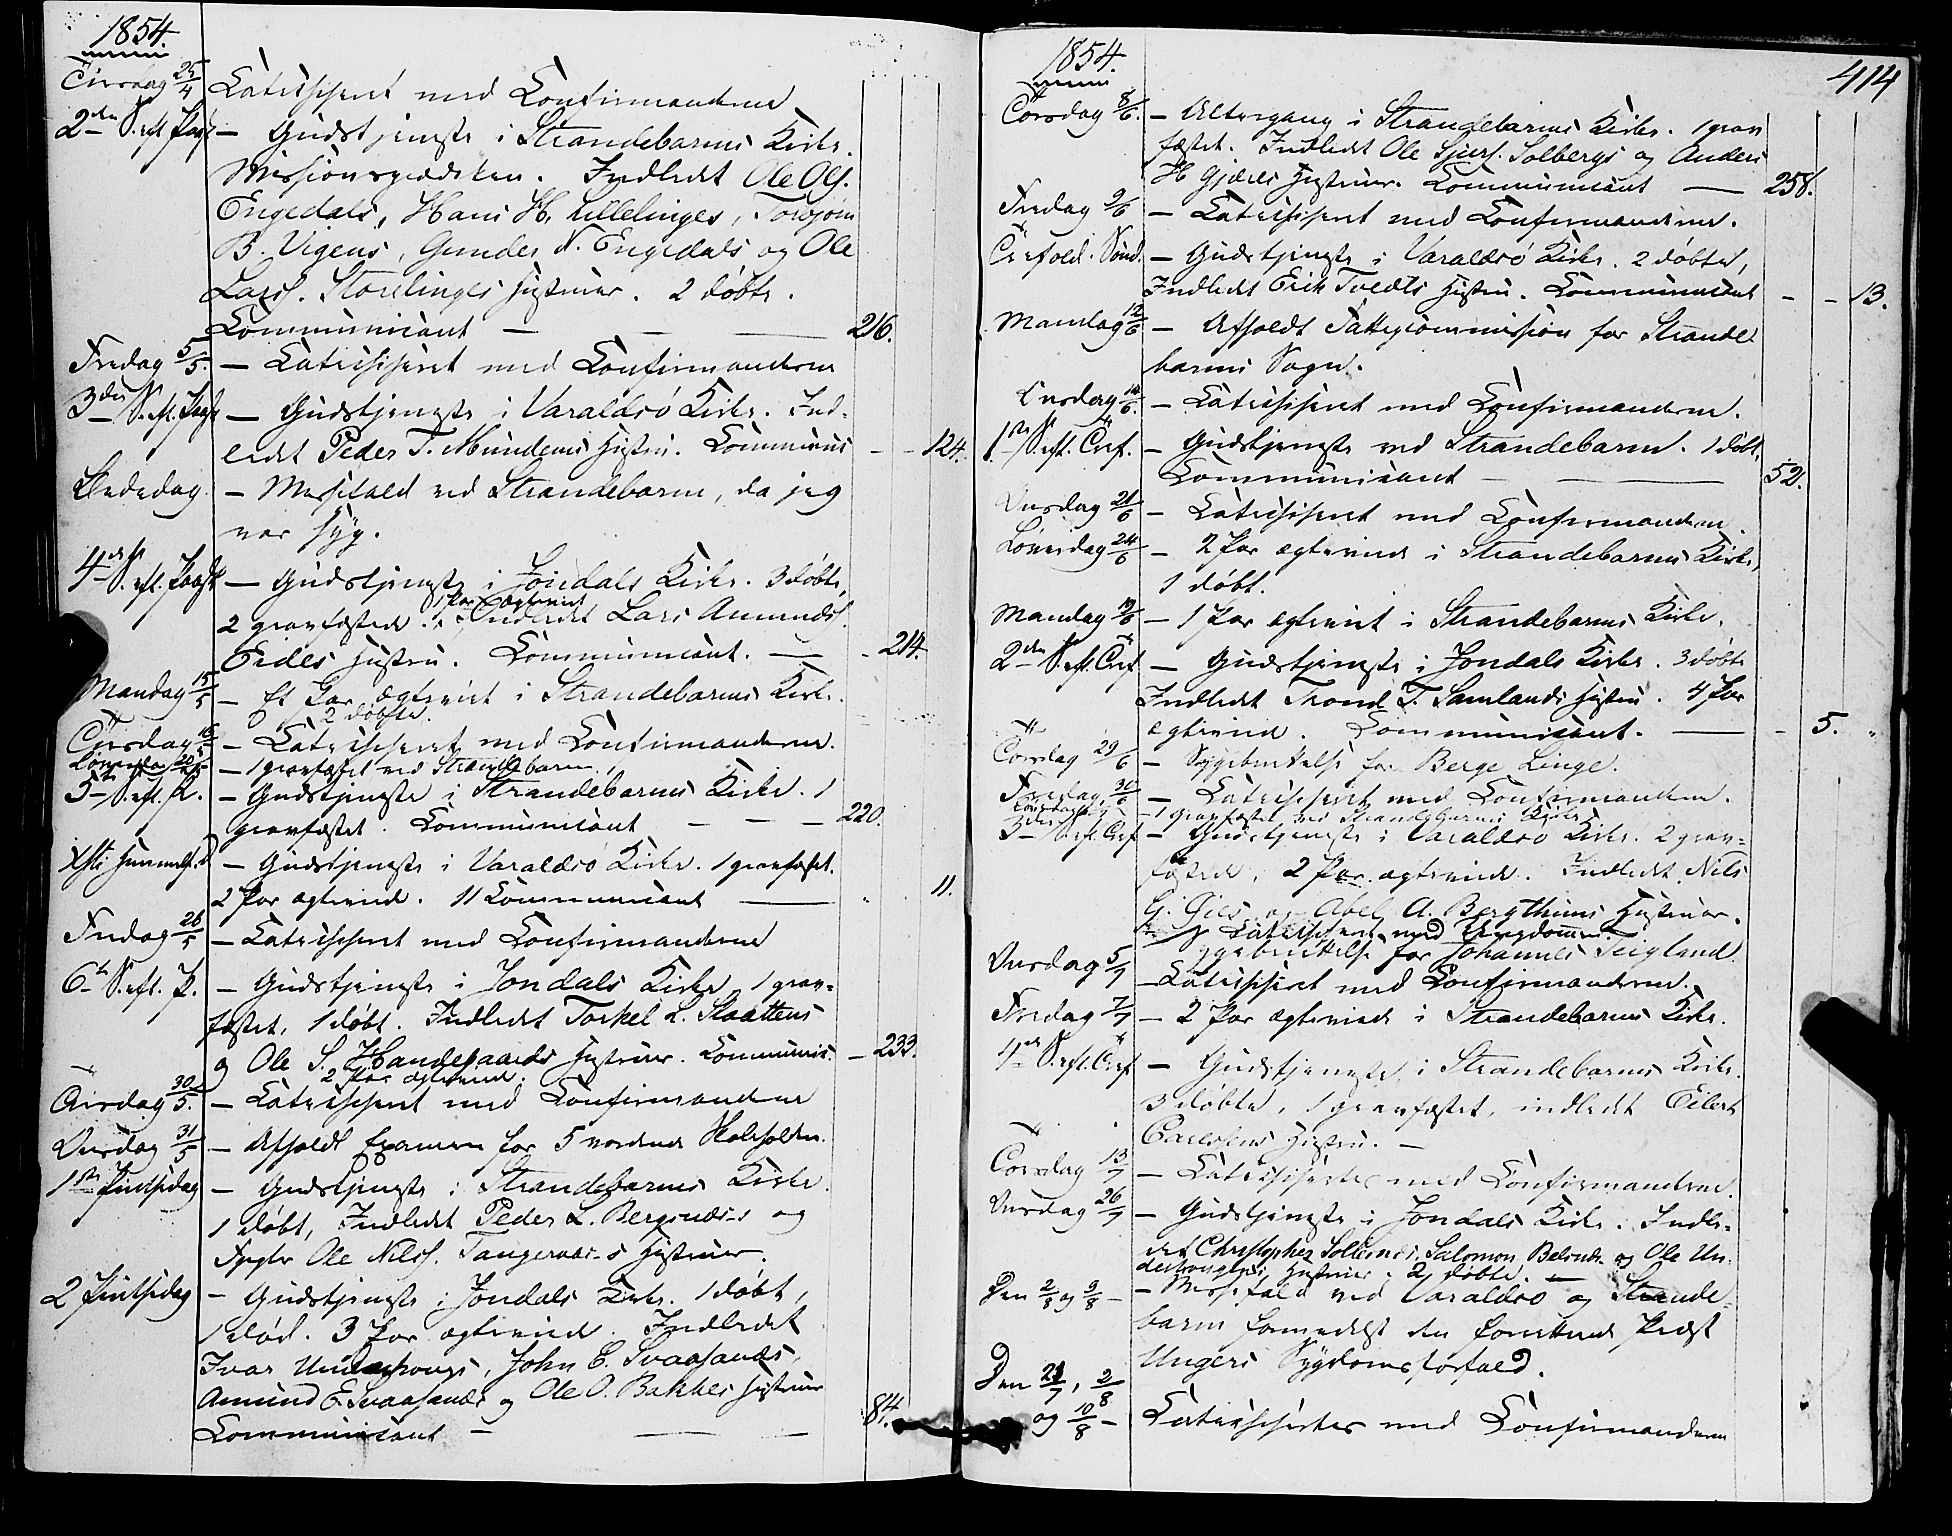 1854.
Tirsdag 25/4 Catechiseret med Confirmanderne
2den S. eft. Paaske – Gudstjeneste i Strandebarms Kirke.
Missionsprædiken. Indledt Ole Ols.
Engedals, Hans H. Lillelinges, Torbjørn
B. Vigens, Gunder N. Engedals og Ole
Larss. Storelinges Hustruer. 2 døbte.
Communicant — 216.
Fredag 5/5. – Catechiseret med Confirmanderne
3die S. eft. Paaske – Gudstjeneste i Varaldsø Kirke. Ind-
ledt Peder T. Mundems Hustru. Communic – 124.
Bededag. – Messefald ved Strandebarm, da jeg
var syg.
4de S. eft. Paaske – Gudstjeneste i Jondals Kirke. 3 døbte,
1 Par ægteviet
2 gravfæstede. Indledt Lars Amunds.
Eides Hustru. Communicant. — 214.
Mandag 15/5 – Et Par ægteviet i Strandebarms Kirke.
2 døbte.
Tirsdag 16/5 – Catechiseret med Confirmanderne.
Løverdag 20/5 – 1 gravfæstet ved Strandebarm
5te S. eft. P. – Gudstjeneste i Strandebarms Kirke. 1
gravfæstet. Communicant — 220.
Xsti Himmelf. D – Gudstjeneste i Varaldsø Kirke. 1 gravfæstet.
2 Par ægteviede. 11 Communicant — 11.
Fredag 26/5 – Catechiseret med Confirmanderne
6te S. eft. P. – Gudstjeneste i Jondals Kirke. 1 grav-
fæstet, 1 døbt. Indledt Torkel L. Skaattens
og Ole S. Handegaards Hustruer. Communic. – 233.
2 Par ægteviede.
Tirsdag 30/5. – Catechiseret med Confirmanderne
Onsdag 31/5 – Afholdt Examen for 5 vordende Skoleholdere.
1ste Pintsedag – Gudstjeneste i Strandebarms Kirke.
1 døbt, Indledt Peder L. Bergnæs-s og
Ole Nilss. Tangeraas-s Hustruer.
2 Pintsedag – Gudstjeneste i Jondals Kirke. 1 døbt,
1 død. 3 Par ægteviede. Indledt
Ivar Underhougs, John E. Svaasands,
Amund E. Svaasands og Ole O. Bakkes Hustruer
Communicant — 84.
414
1854.
Torsdag 8/6. – Altergang i Strandebarms Kirke. 1 grav
fæstet. Indledt Ole Sjurs. Solbergs og Anders
H Gjæres Hustruer. Communicant — 258.
Fredag 9/6 – Catechiseret med Confirmanderne.
Trefold. Sønd. – Gudstjeneste i Varaldsø Kirke. 2 døbte,
Indledt Erik Tvedts Hustru. Communicant – – 13.
Mandag 12/6 – Afholdt Fattigcommission for Strande
barms Sogn.
Onsdag 14/6. – Catechiseret med Confirmanderne.
1ste S. eft. Tref. – Gudstjeneste ved Strandebarm. 1 døbt.
Communicant — 52.
Onsdag 21/6 – Catechiseret med Confirmanderne.
Løverdag 24/6 – 2 Par ægteviede i Strandebarms Kirke,
1 døbt.
Mandag 19/6 – 1 Par ægteviet i Strandebarms Kirke.
2den S. eft. Tref – Gudstjeneste i Jondals Kirke. 3 døbte
Indledt Trond T. Samlands Hustru. 4 Par
ægteviede. Communicant. — 5.
Torsdag 29/6 – Sygeberettelse for Berge Linge.
Fredag 30/6 – Catechiseret med Confirmanderne.
Løverdag – 1 gravfæstet ved Strandebarms Kirke
3die S. eft. Tref – Gudstjeneste i Varaldsø Kirke. 2 grav-
fæstede, 2 Par ægteviede. Indledt Nils
G. Øies og Abel A. Bergthuns Hustruer.
Catechiseret med Ungdommen.
Sygeberettelse for Johannes Teigland.
Onsdag 5/7 – Catechiseret med Confirmanderne.
Fredag 7/7 – 2 Par ægteviede i Strandebarms Kirke.
4de S. eft. Tref – Gudstjeneste i Strandebarms Kirke.
3 døbte, 1 gravfæstet, indledt Eilert
Carlsens Hustru. –
Torsdag 13/7 – Catechiseret med Confirmanderne.
Onsdag 26/7 – Gudstjeneste i Jondals Kirke. Indle-
det Christopher Solesnæs, Salomon Belsnæs og Ole Un-
derhougs Hustruer. 2 døbte. –
Den 2/8 og 9/8 – – Messefald ved Varaldsø og Strande-
barm formedelst den forrettende Præst
Ungers Sygdomsforfald.
Den 21/7, 2/8
og 10/8 – Catechiseret med Confirmanderne